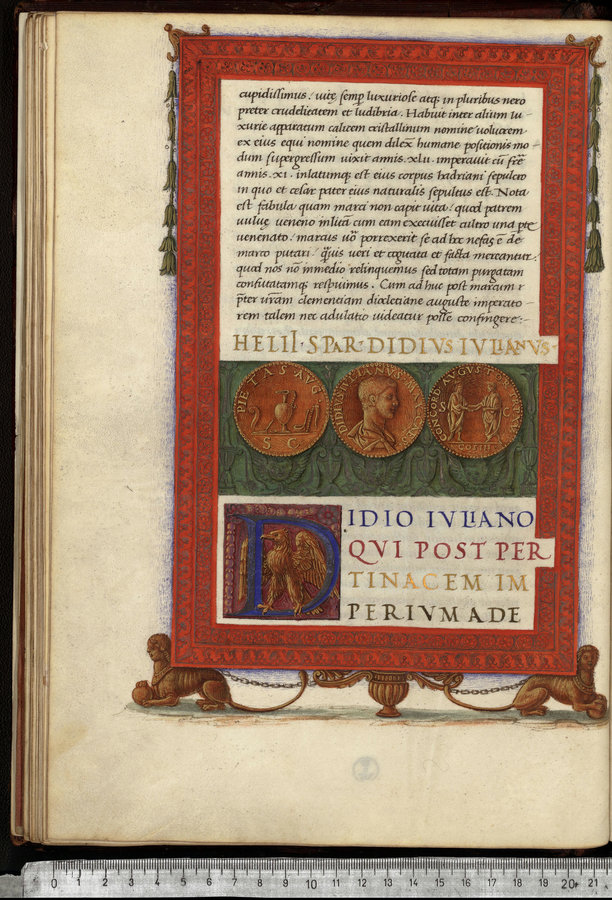 cupidissimus. vitę semp luxuriose atq; in pluribus nero
preter crudelitatem et ludibria. Habuit inter alium lu-
xurie apparatum calicem cristallinum nomine volucrem
ex eius equi nomine quem dilexit humane potitionis mo
dum supergressum vixit annis. XLII. imperavit cũ frẽ
annis. XI. inlatumq; est eius corpus hadriani sepulcro
in quo et cesar pater eius naturalis sepultus est. Nota
est fabula quam marci non capit vita. quod patrem
vulvę veneno inlitã cum eam execuisset cultro una pte
venenato. marcus porrexerit
marco putari. veri et cogitata et facta mereantur.
quod nos nõ immedio relinquemus sed totam purgatam
confutatamq; respuimus. Cum ad huc post marcum
pter vram clementiam diocletiane auguste imperato-
rem talem nec adulatio videatur posse confingere:-
HELII. SPAR. DIDIVS IVLIANVS.
PIETAS AVG
S C
DIDIVS IVLIANVS
CONCORD AVGVST
S C
COS III
D
IDIO IVLIANO
QVI POST PER
TINACEM IM
PERIVM ADE
0 1 2 3 4 5 6 7 8 9 10 11 12 13 14 15 16 17 18 19 20 21